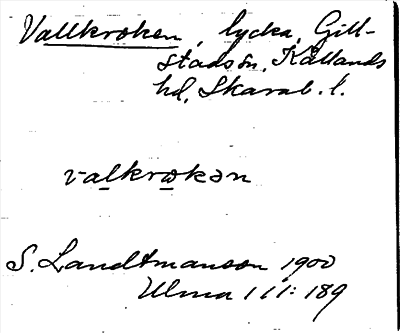 Vallkroken, lycka, Gill-
stads sn, Kållands
hd, Skarab. l.
valkrokən
S. Landtmanson 1900
Ulma 111: 189